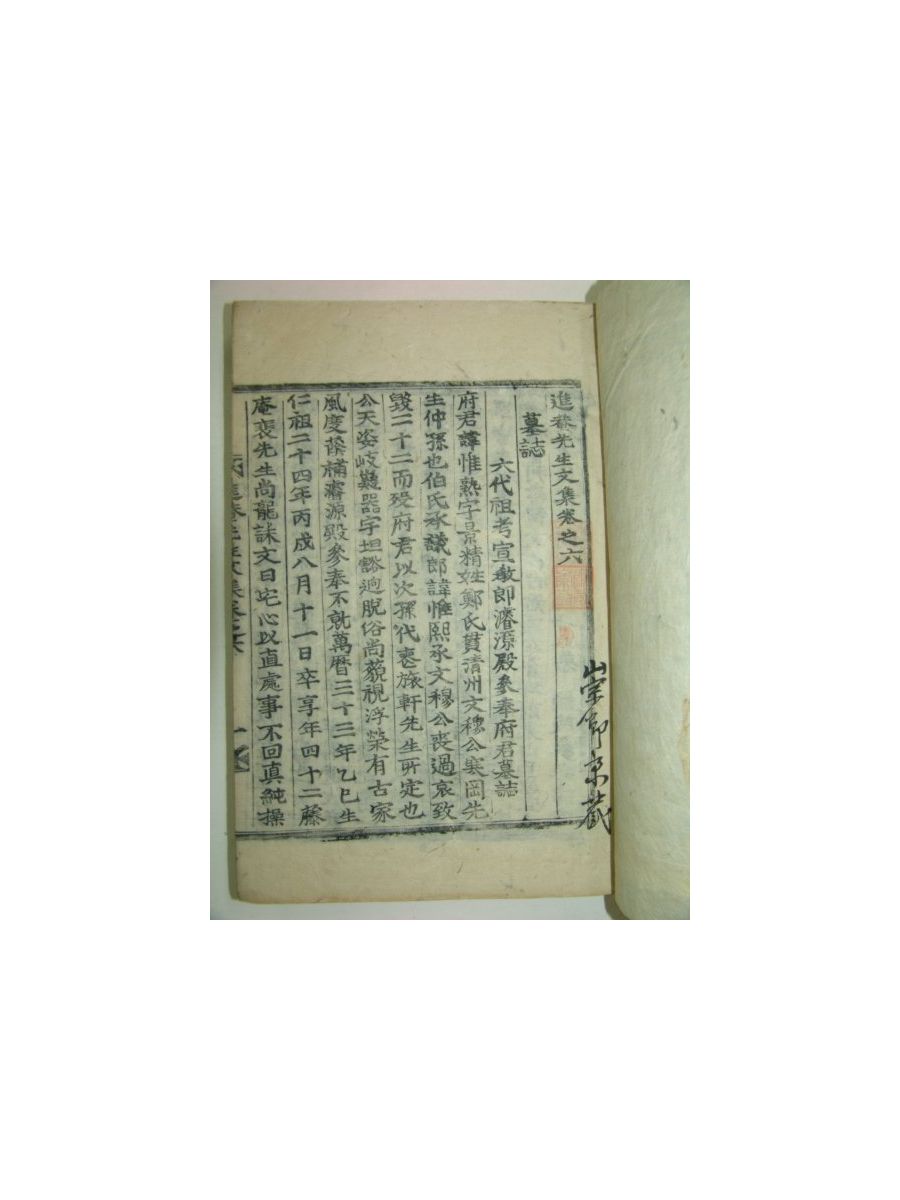 進菴先生文集卷之六
墓誌
六代祖考宣敎郎濬源殿參奉府君墓誌
府君諱惟熟字景精姓鄭氏貫清州文穆公寒岡先
生仲孫也伯氏承議郎諱惟熙承文穆公喪過哀致
毀二十二而歿府君以次孫代喪旅軒先生所定也
公天姿岐嶷器宇坦豁逈脫俗尚藐視浮榮有古家
風度蔭補濬源殿參奉不就萬曆三十三年乙巳生
仁祖二十四年丙戌八月十一日卒享年四十二藤
庵裵先生尚龍誄文曰宅心以直處事不回眞純操
進菴先生文集卷之六 一